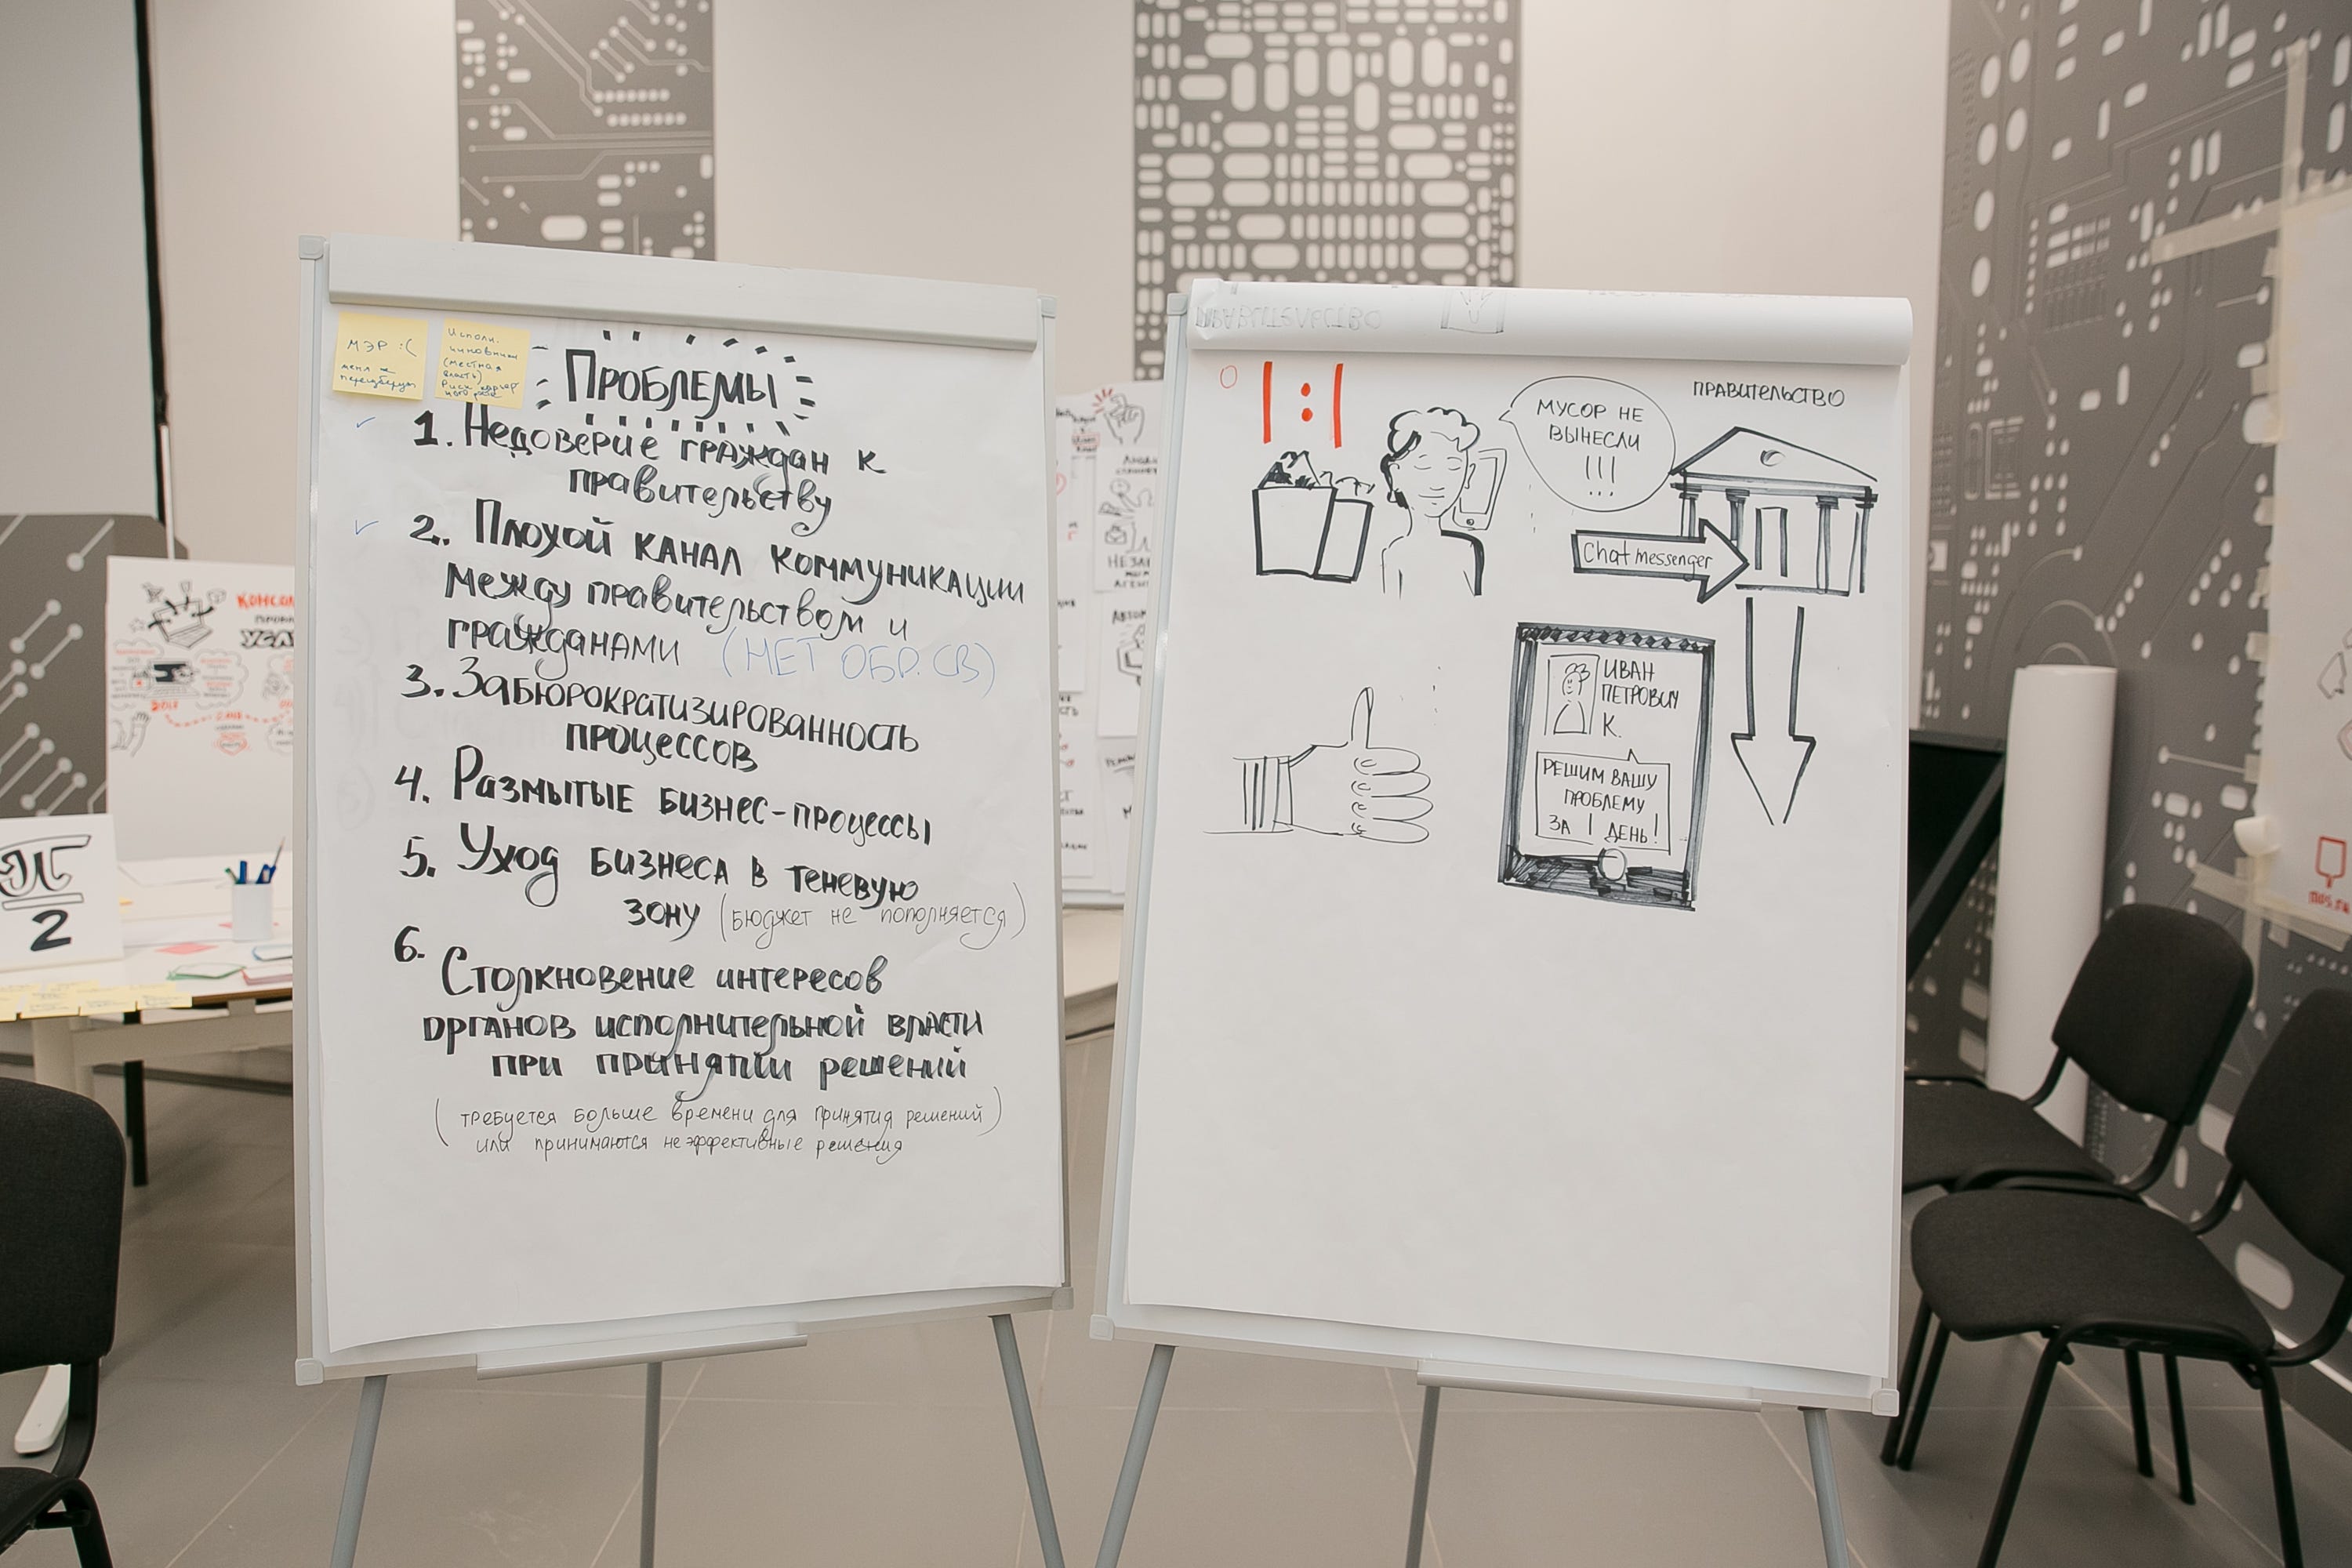 МЭР :(
меня не
переизберут
Исполн.
чиновники
(местная
власть)
Риск карьер
ного роста
Проблемы
1. Недоверие граждан к
правительству
2. Плохой канал коммуникации
между правительством и
гражданами (НЕТ ОБР. СВ)
3. Забюрократизированность
процессов
4. Размытые бизнес-процессы
5. Уход бизнеса в теневую
зону (бюджет не пополняется)
6. Столкновение интересов
органов исполнительной власти
при принятии решений
(требуется больше времени для принятия решений)
или принимаются неэффективные решения
1:1
МУСОР НЕ
ВЫНЕСЛИ
!!!
...
ПРАВИТЕЛЬСТВО
Chat messenger
ИВАН
ПЕТРОВИЧ
К.
РЕШИМ ВАШУ
ПРОБЛЕМУ
ЗА 1 ДЕНЬ!
π
2
2017